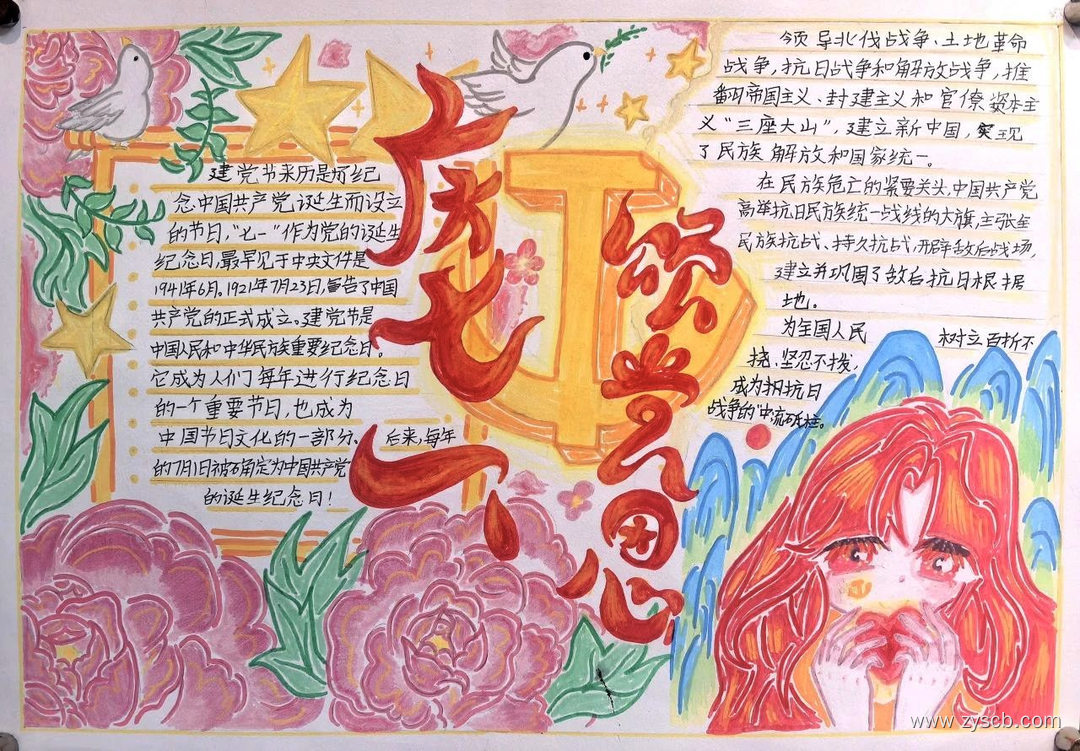 庆七一、
颂党恩心
建党节来历是为纪
念中国共产党诞生而设立
的节日,"七一"作为党的诞生
纪念日,最早见于中央文件是
1941年6月。1921年7月23日,宣告了中国
共产党的正式成立。建党节是
中国人民和中华民族重要纪念日。
它成为人们每年进行纪念日
的一个重要节日,也成为
中国节日文化的一部分。 后来,每年
的7月1日被确定为中国共产党
的诞生纪念日!
领导北伐战争、土地革命
战争,抗日战争和解放战争,推
翻帝国主义、封建主义和官僚资本主
义"三座大山",建立新中国,实现
了民族解放和国家统一。
在民族危亡的紧要关头,中国共产党
高举抗日民族统一战线的大旗,主张全
民族抗战、持久抗战,开辟敌后战场,
建立并巩固了敌后抗日根据
地。
为全国人民 树立百折不
挠、坚忍不拔,
成为抗日
战争的"中流砥柱。
www.zyscb.com